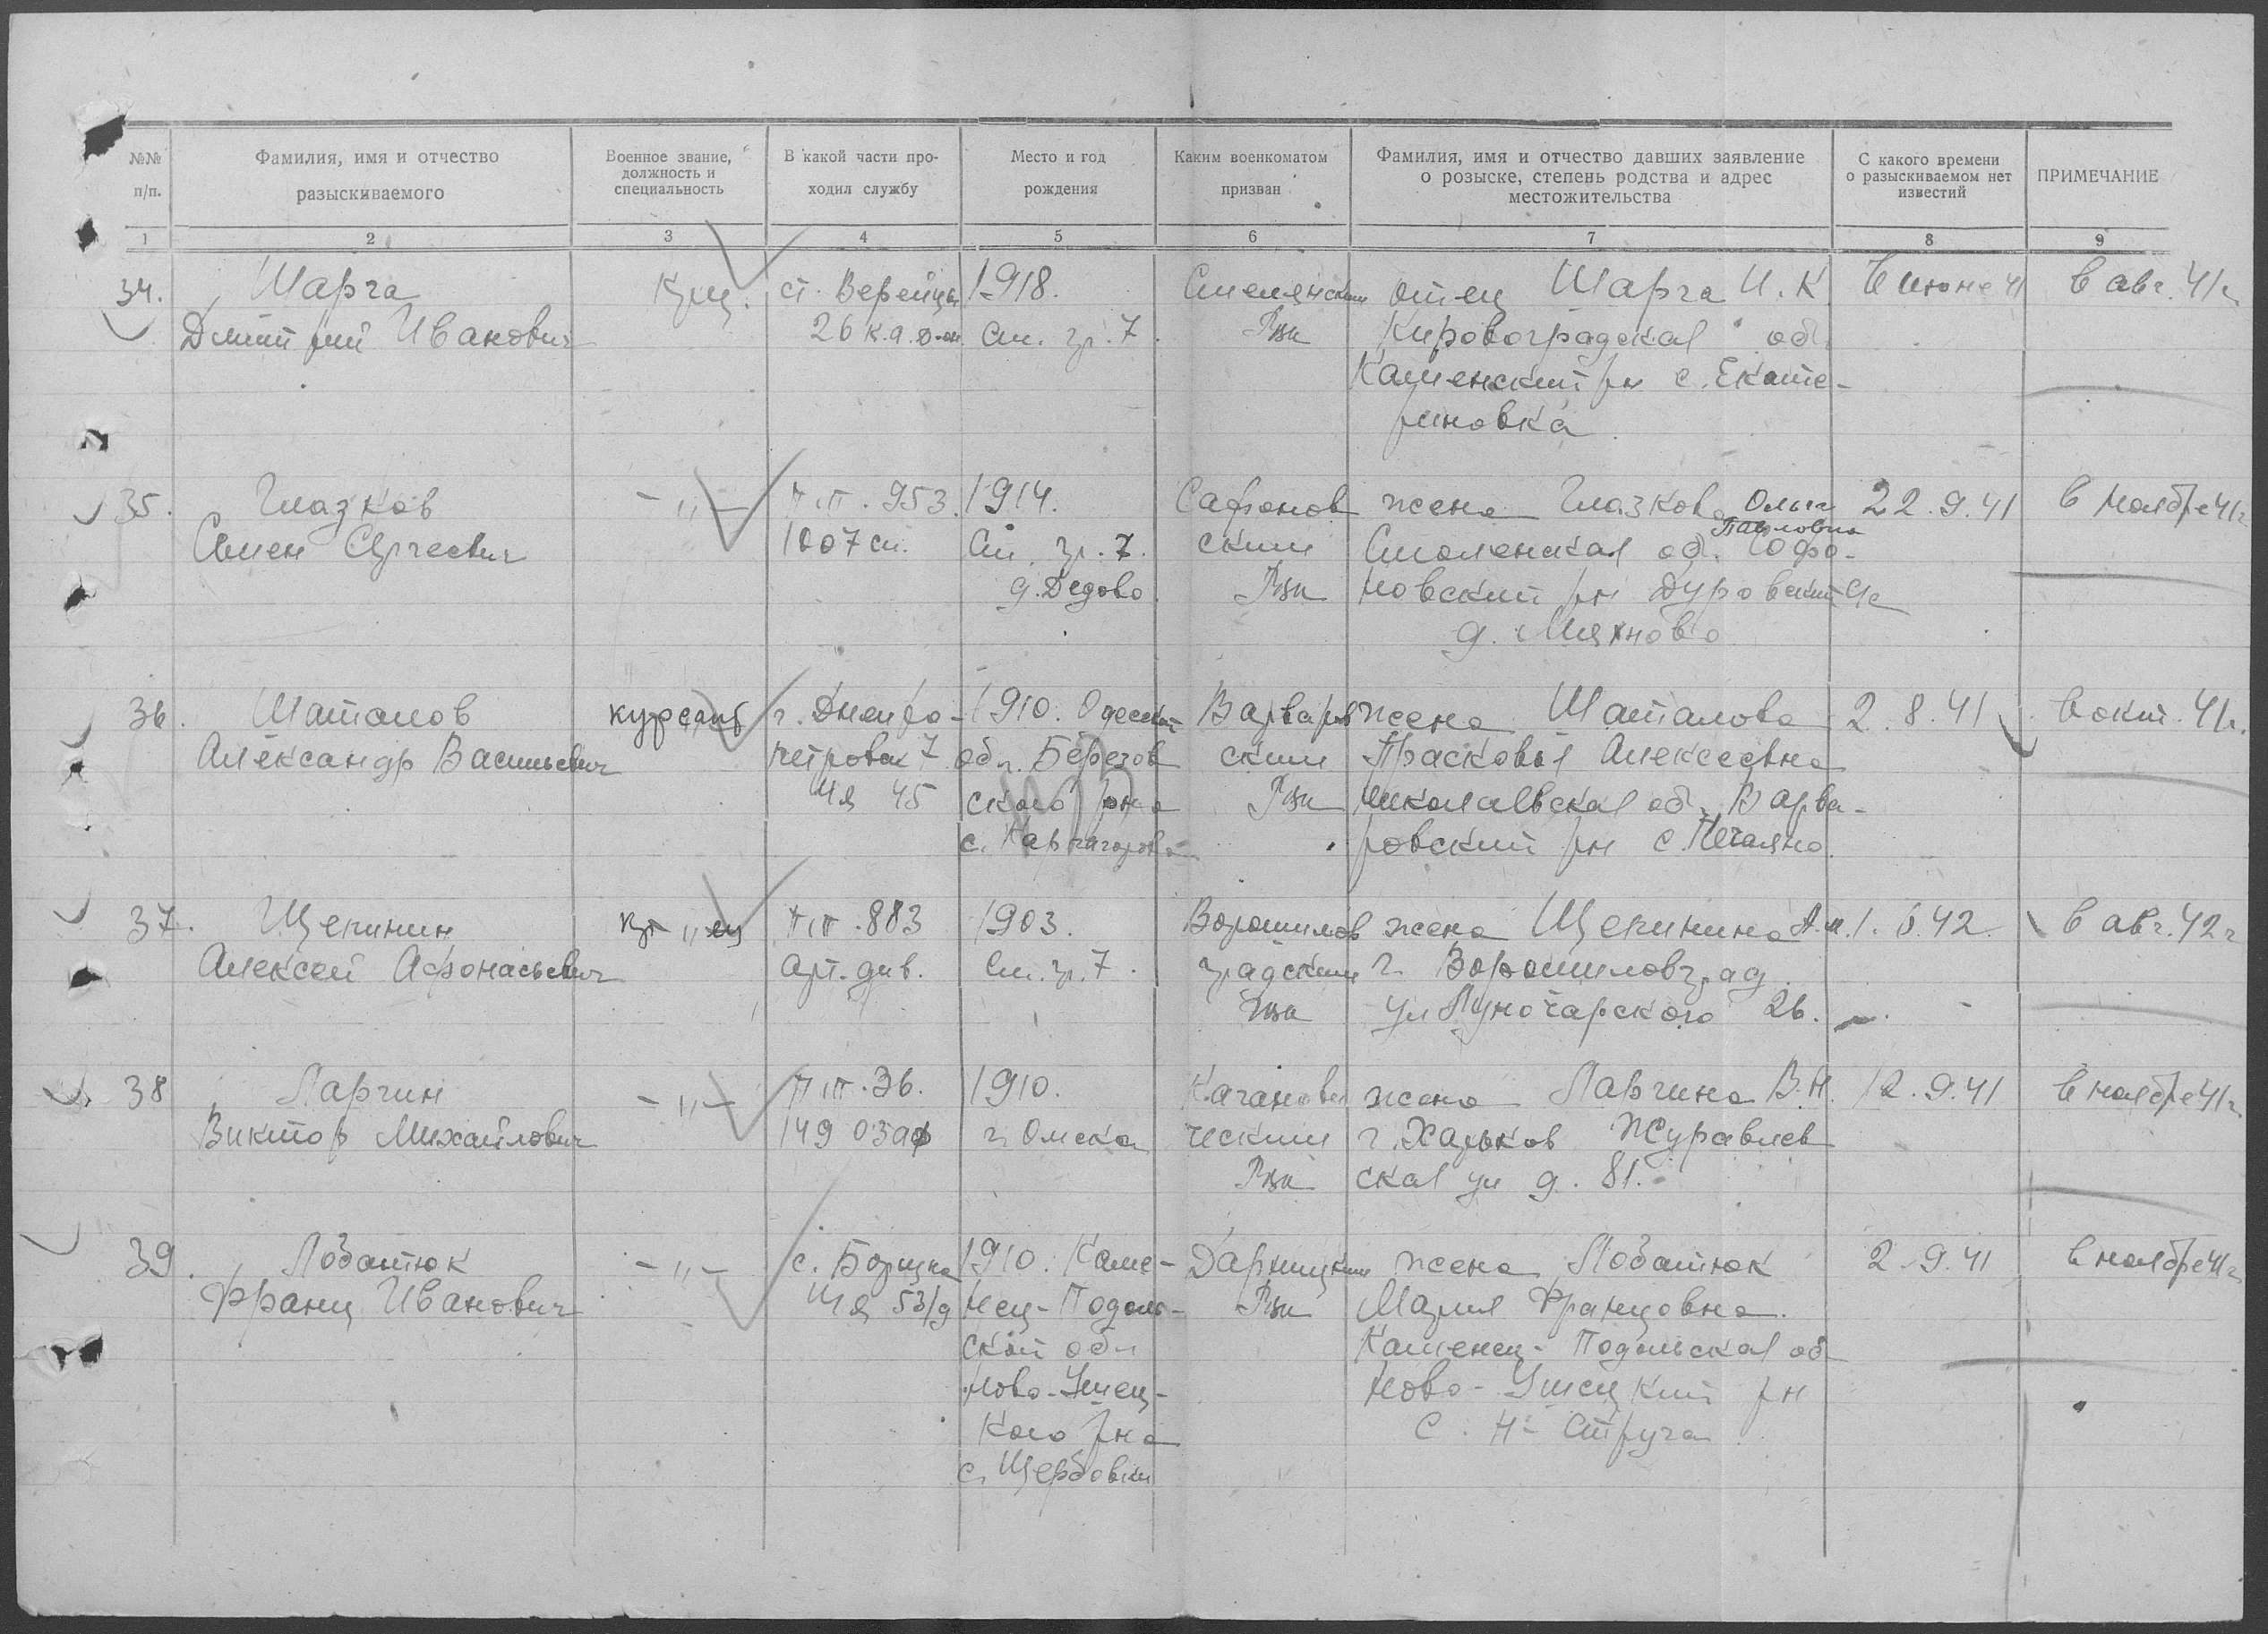 №№ п/п.
Фамилия, имя и отчество разыскиваемого
Военное звание, должность и специальность
В какой части проходил службу
Место и год рождения
Каким военкоматом призван
Фамилия, имя и отчество давших заявление о розыске, степень родства и адрес местожительства
С какого времени о разыскиваемом нет известий
ПРИМЕЧАНИЕ
1 2 3 4 5 6 7 8 9
34. Шарга
Дмитрий Иванович
Крц.
ст. Верейцы
26 к.а.
1918.
См. гр. 7.
Смелянским
Рвк
отец Шарга И. К
Кировоградская об.
Каменский рн с. Екате-
риновка
В июне 41
в авг. 41г.
35. Глазков
Семен Сергеевич
-"-
п.п. 953.
1007 сп.
1914.
См. гр. 7.
д. Дедово.
Сафонов
ским
Рвк
жена Глазкова Ольга
Павловна
Смоленская об. Софо-
новский рн Дуровский с/с
д. Мяхново
22.9.41
в ноябре 41г
36. Шаталов
Александр Васильевич
курсант
г. Днепро-
петровск 7
п/я 45
1910. Одесской
обл. Березов
ского рна
с.
Варваров
ским
Рвк
жена Шаталова
Прасковья Алексеевна
Николаевская об. Варва-
ровский рн с. Печаяно.
2.8.41
в окт. 41г.
37. Щепинин
Алексей Афонасьевич
кр-"-ец
п.п. 883
арт. див.
1903.
См. гр. 7.
Ворошилов
градским
Рвк
жена Щепинина А.М.
г. Ворошиловград
ул Луночарского 26.
42.
в авг. 42г
38 Ларгин
Виктор Михайлович
-"-
п.п. 36.
149 озад
1910.
г. Омска
Каганови
ческим
Рвк
жена Ларгина В.Н.
г. Харьков Журавлев
ская ул д. 81.
12.9.41
в ноябре 41г.
39. Лобатюк
Франц Иванович
-"-
с. Борщна
п/я 53/9
1910. Каме-
нец-Подоль-
ской обл
Ново-Ушец-
кого рна
с. Щербовки
Дарницким
Рвк
жена Лобатюк
Мария Францовна.
Каменец-Подольская об
Ново-Ушецкий рн
с. Н-Струга
2.9.41
в ноябре 41г